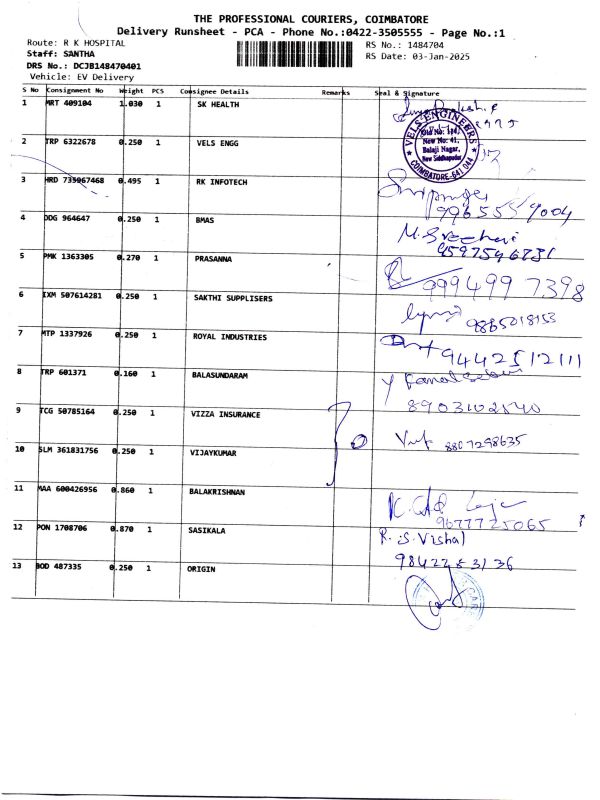 THE PROFESSIONAL COURIERS, COIMBATORE
Delivery Runsheet - PCA - Phone No.:0422-3505555 - Page No.:1
Route: R K HOSPITAL RS No.: 1484704
Staff: SANTHA RS Date: 03-Jan-2025
DRS No.: DCJB148470401
Vehicle: EV Delivery
S No Consignment No Weight PCS Consignee Details Remarks Seal & Signature
1 MRT 409104 1.030 1 SK HEALTH
2 TRP 6322678 0.250 1 VELS ENGG
VELS ENGINEERS
Old No: 134,
New No: 41,
Balaji Nagar,
New Siddhapudur
COIMBATORE-641 044
3 HRD 735967468 0.495 1 RK INFOTECH
4 DDG 964647 0.250 1 BMAS
5 PMK 1363305 0.270 1 PRASANNA
999499 7398
6 IXM 507614281 0.250 1 SAKTHI SUPPLISERS
9865018153
7 MTP 1337926 0.250 1 ROYAL INDUSTRIES
9442512111
8 TRP 601371 0.160 1 BALASUNDARAM
8903102540
9 TCG 50785164 0.250 1 VIZZA INSURANCE
8807298635
10 SLM 361831756 0.250 1 VIJAYKUMAR
11 MAA 600426956 0.860 1 BALAKRISHNAN
9677725065
12 PON 1708706 0.870 1 SASIKALA
R.S. Vishal
98422 53136
13 BOD 487335 0.250 1 ORIGIN